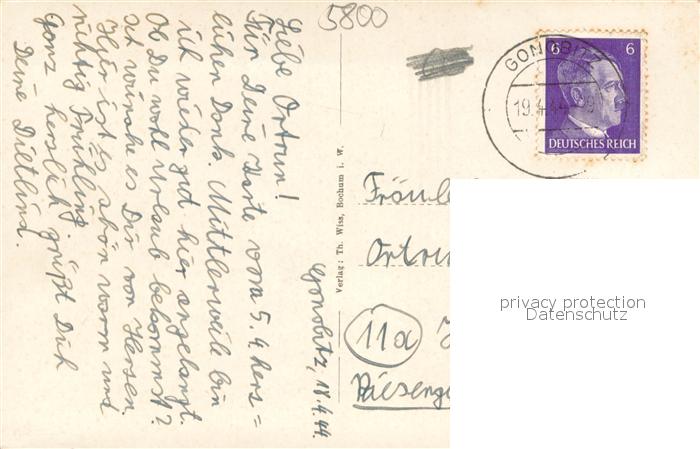 5800
Gonobitz, 18.4.44.
Liebe Ortrun!
Für Deine Karte vom 5.4 herz=
lichen Dank. Mittlerweile bin
ich wieder gut hier angelangt.
Ob Du wohl Urlaub bekommst?
ich wünsche es Dir von Herzen
Hier ist es schön warm und
richtig Frühling.
Ganz herzlich grüßt Dich
Deine Dietlind.
Verlag: Th. Wiss, Bochum i. W.
GONOBITZ
19.4.44
6 6
DEUTSCHES REICH
Fräule
Ortrun
11a
Riesenge
privacy protection
Datenschutz